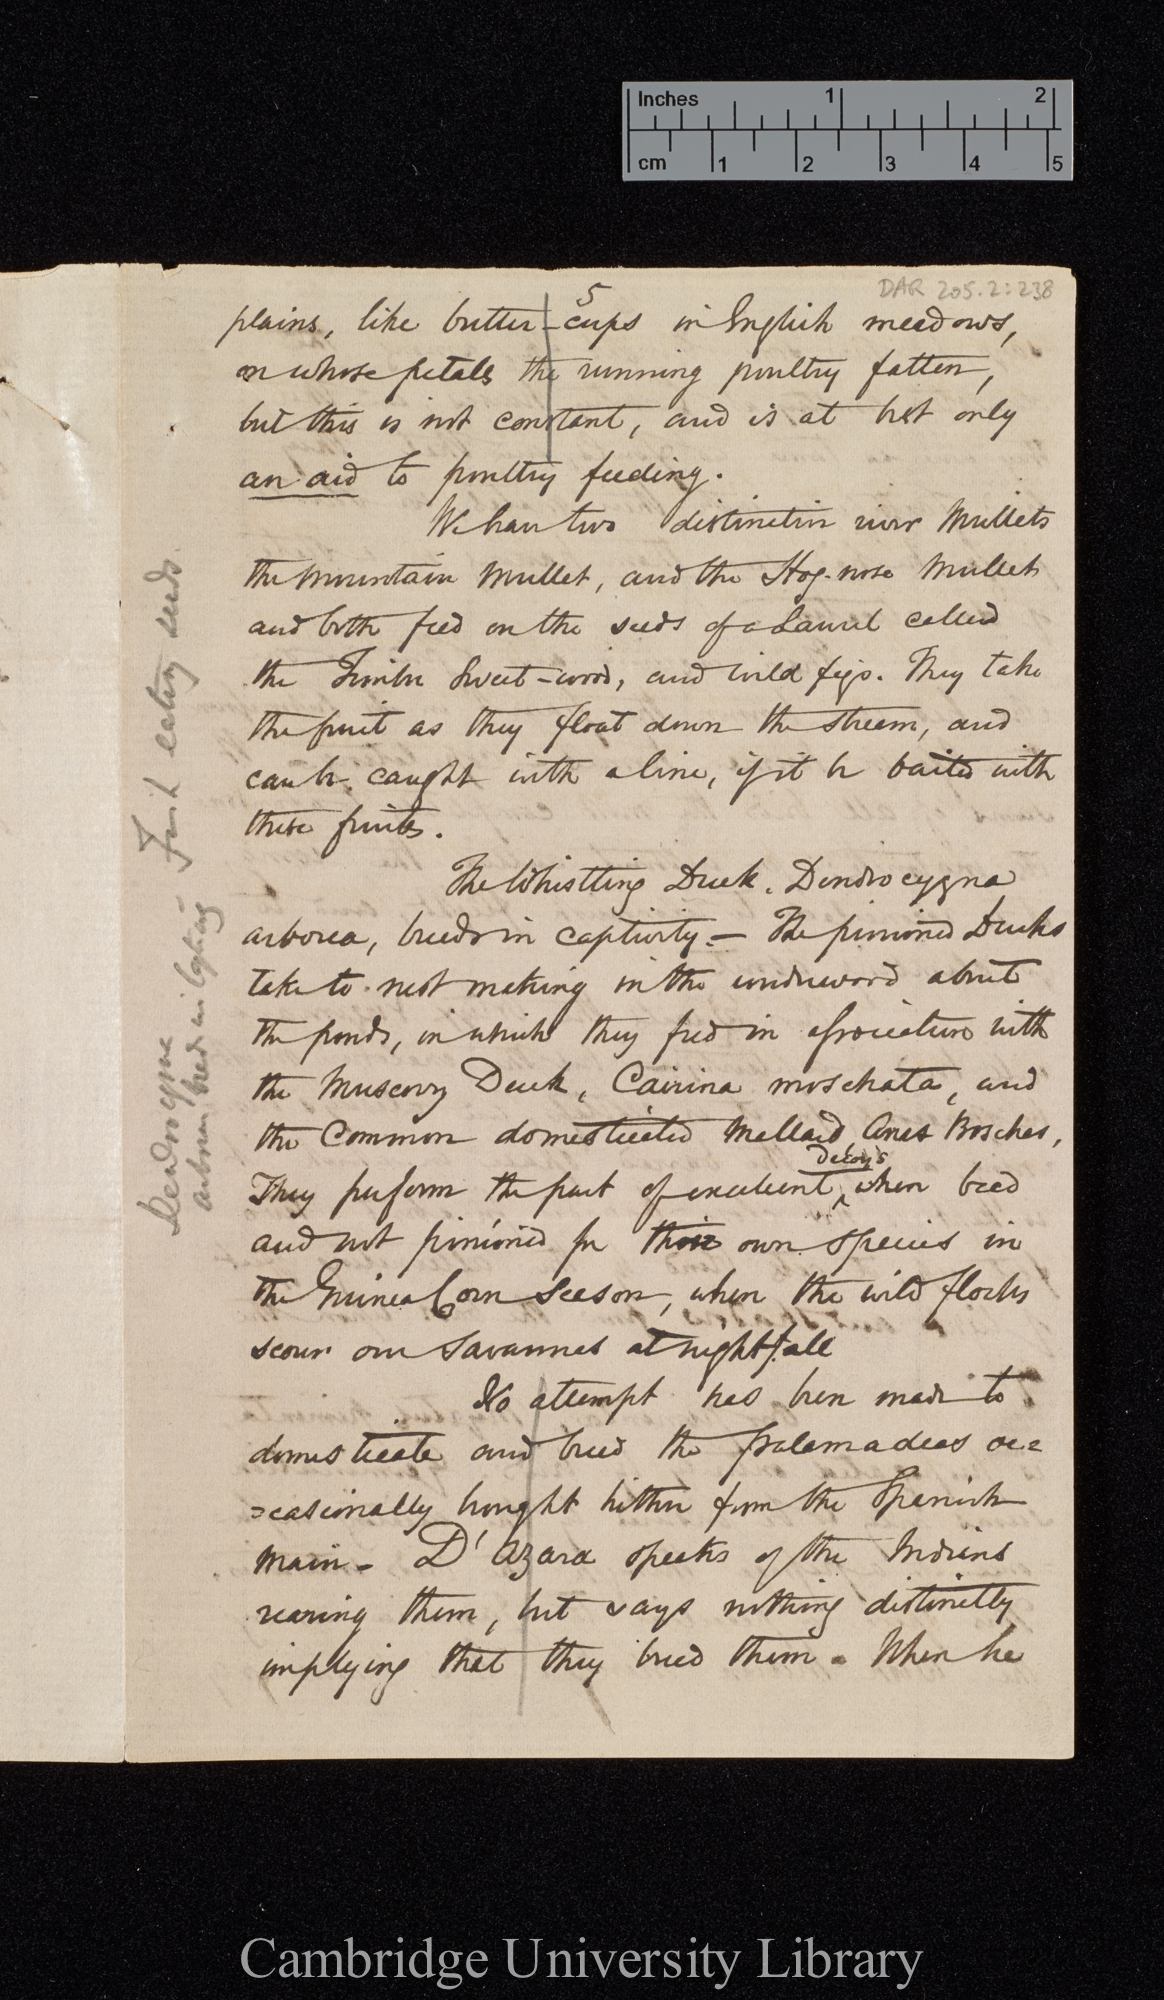 Inches 1 2
cm 1 2 3 4 5
DAR 205.2:238
5
plains, like butter-cups in English meadows,
on whose petals the running poultry fatten,
but this is not constant, and is at best only
an aid to poultry feeding.
We have two distinctive river Mullets
the Mountain Mullet, and the Hog-nose Mullet
and both feed on the seeds of a Laurel called
the Timber Sweet-wood, and wild figs. They take
the fruit as they float down the stream, and
can be caught with a line, if it be baited with
these fruits.
The Whistling Duck. Dendrocygna
arborea, breeds in captivity. — The pinioned Ducks
take to nest making in the underwood about
the ponds, in which they feed in association with
the Muscovy Duck, Cairina moschata, and
the Common domesticated Mallard Anas Boschas,
They perform the part of excellent decoys when bred
and not pinioned for their own species in
the Guinea Corn Season, when the wild flocks
scour our Savannas at nightfall
No attempt has been made to
domesticate and breed the palamadeas oc=
=casionally bought hither from the Spanish
Main - D'Azara speaks of the Indians
rearing them, but says nothing distinctly
implying that they breed them. When he
Dendrocygna
arborea bred in
Fish eating seeds
Cambridge University Library